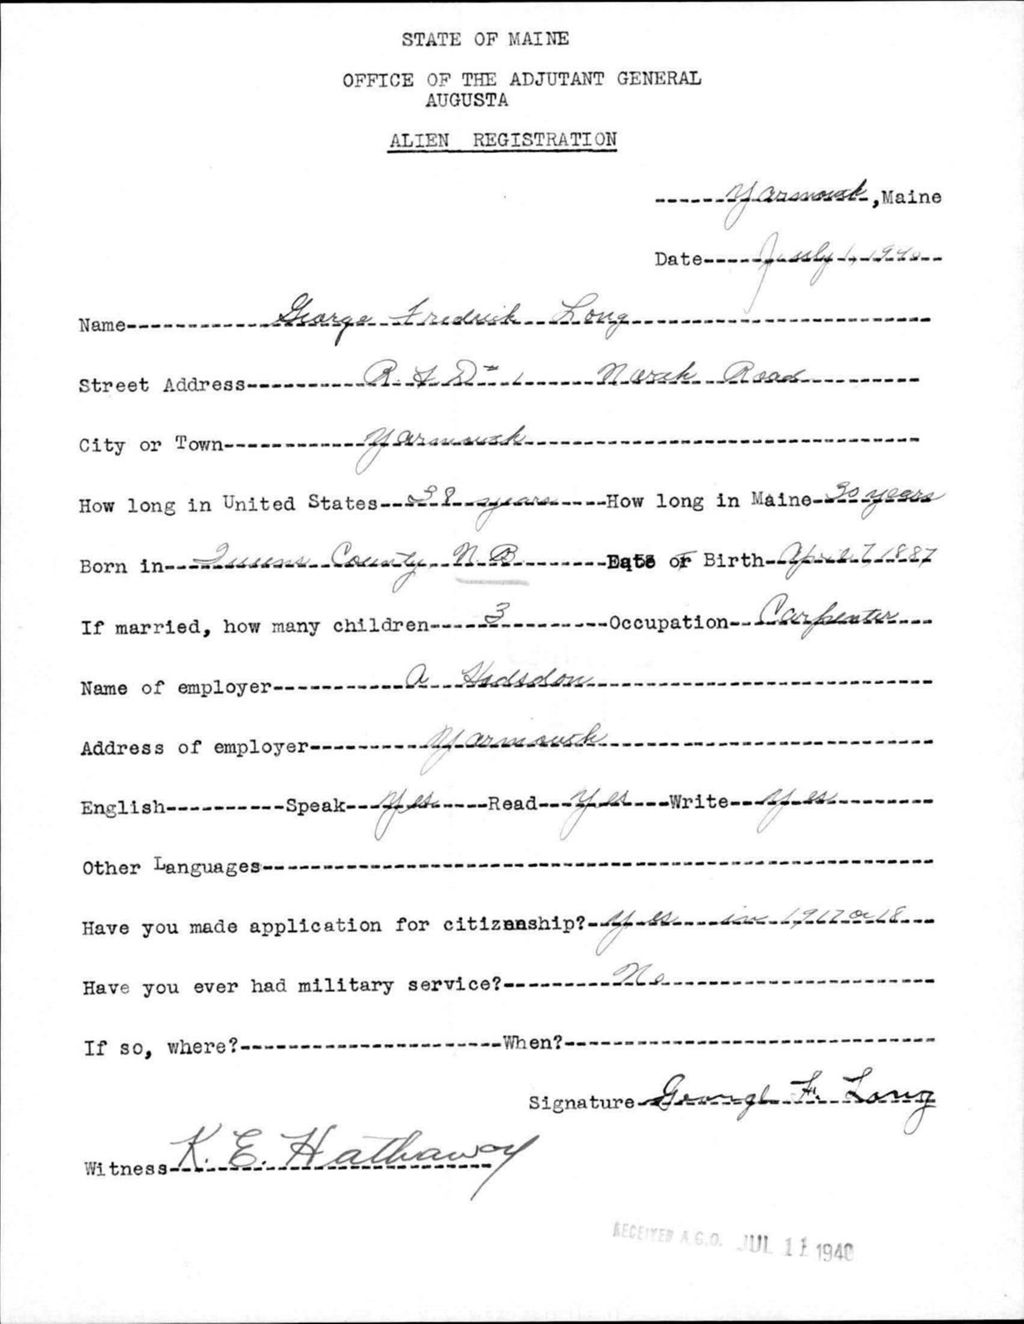 STATE OF MAINE
OFFICE OF THE ADJUTANT GENERAL
AUGUSTA
ALIEN REGISTRATION
Yarmouth, Maine
Date July 1, 1940
Name George Fredrick Long
Street Address R.F.D # 1 North Road
City or Town Yarmouth
How long in United States 38 years How long in Maine 30 years
Born in Queens County N.B Date of Birth April 7 1887
If married, how many children 3 Occupation Carpenter
Name of employer A Hodsdon
Address of employer Yarmouth
English Speak Yes Read Yes Write Yes
Other Languages
Have you made application for citizenship? Yes in 1917 or 18
Have you ever had military service? No
If so, where? When?
Signature George F. Long
Witness K. E. Hathaway
RECEIVED A.G.O. JUL 11 1940